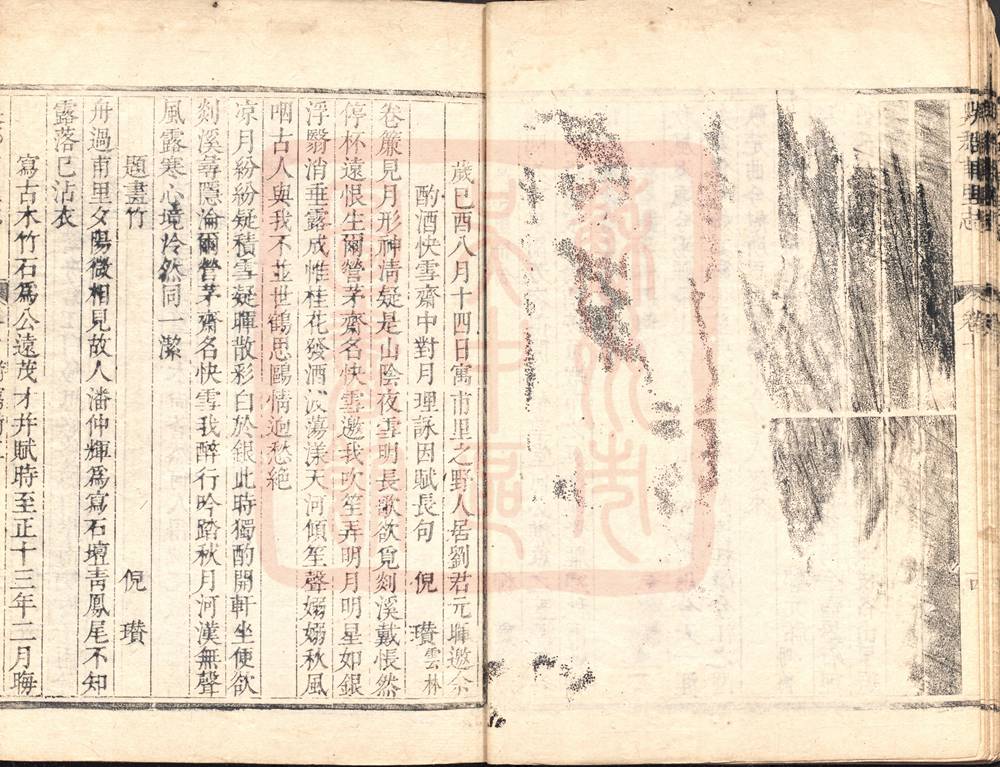 歲己酉八月十四日寓甫里之野人居劉君元暉邀余
酌酒快雪齋中對月理詠因賦長句 倪瓚雲林
卷簾見月形神清疑是山陰夜雪明長歌欲覓剡溪戴悵然
停杯遠恨生爾營茅齋名快雪邀我吹笙弄明月明星如銀
浮翳消垂露成帷桂花發酒波蕩漾天河傾笙聲嫋嫋秋風
咽古人與我不並世鶴思鷗情迥愁絶
凉月紛紛疑積雪凝暉散彩白於銀此時獨酌開軒坐便欲
剡溪尋隱淪爾營茅齋名快雪我醉行吟踏秋月河漢無聲
風露寒心境怜然同一潔
題畫竹 倪瓚
舟過甫里夕陽微相見故人潘仲輝為寫石壇青鳳尾不知
露落已沾衣
寫古木竹石為公遠茂才并賦時至正十三年二月晦